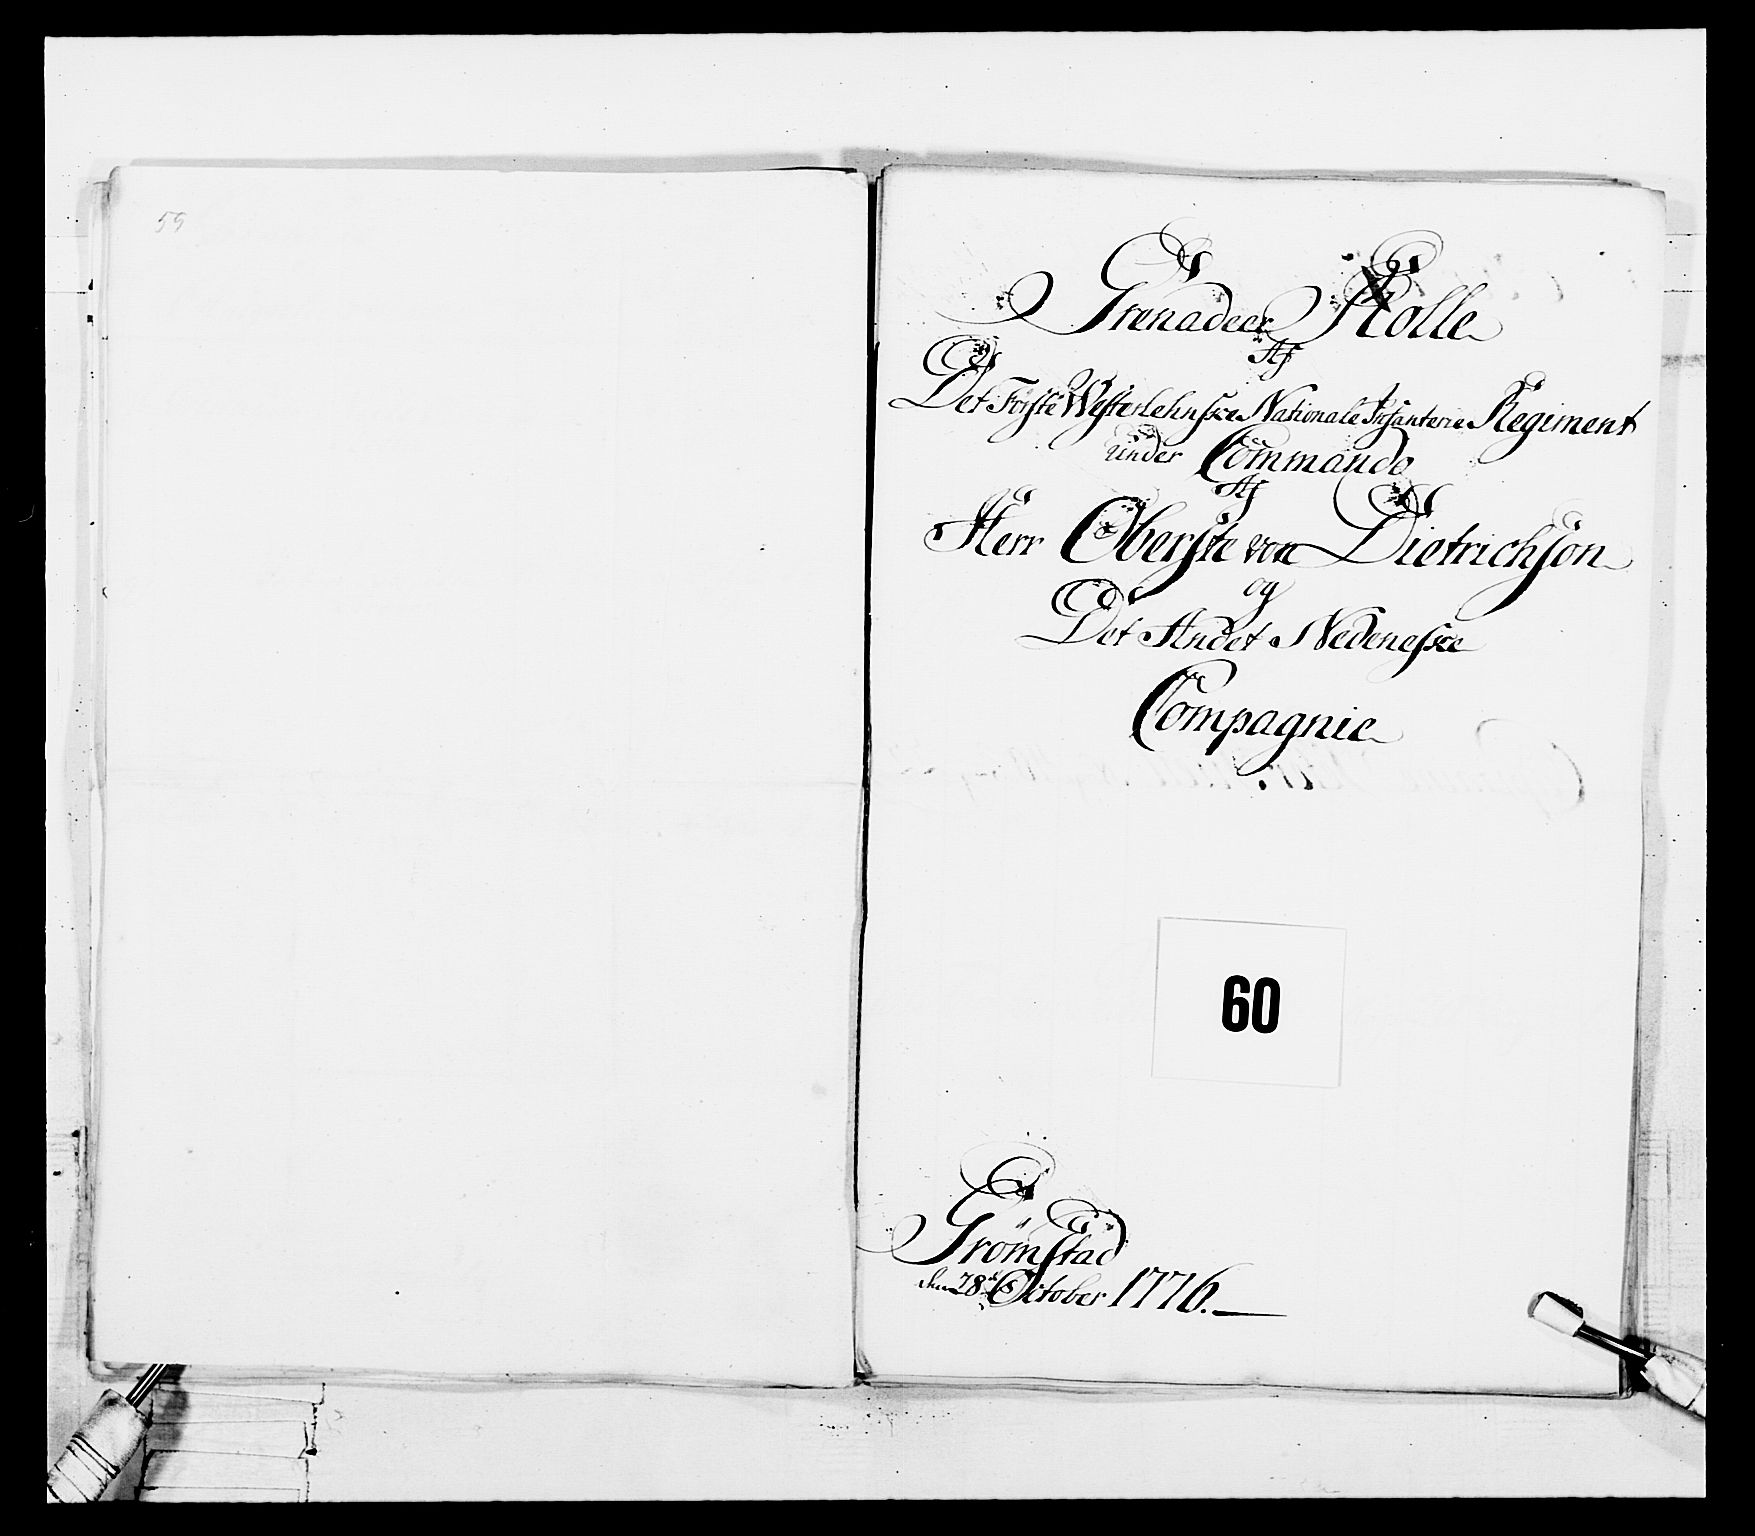 59
Grenadeer Rolle
Af
Det Förste Westerlehnske Nationale Infanterie Regiment
under Commando
Af
Herr Oberste von Dietrichson
og
Det Andet Nedeneske
Compagnie
60
Grömstad
den 28de October 1776.